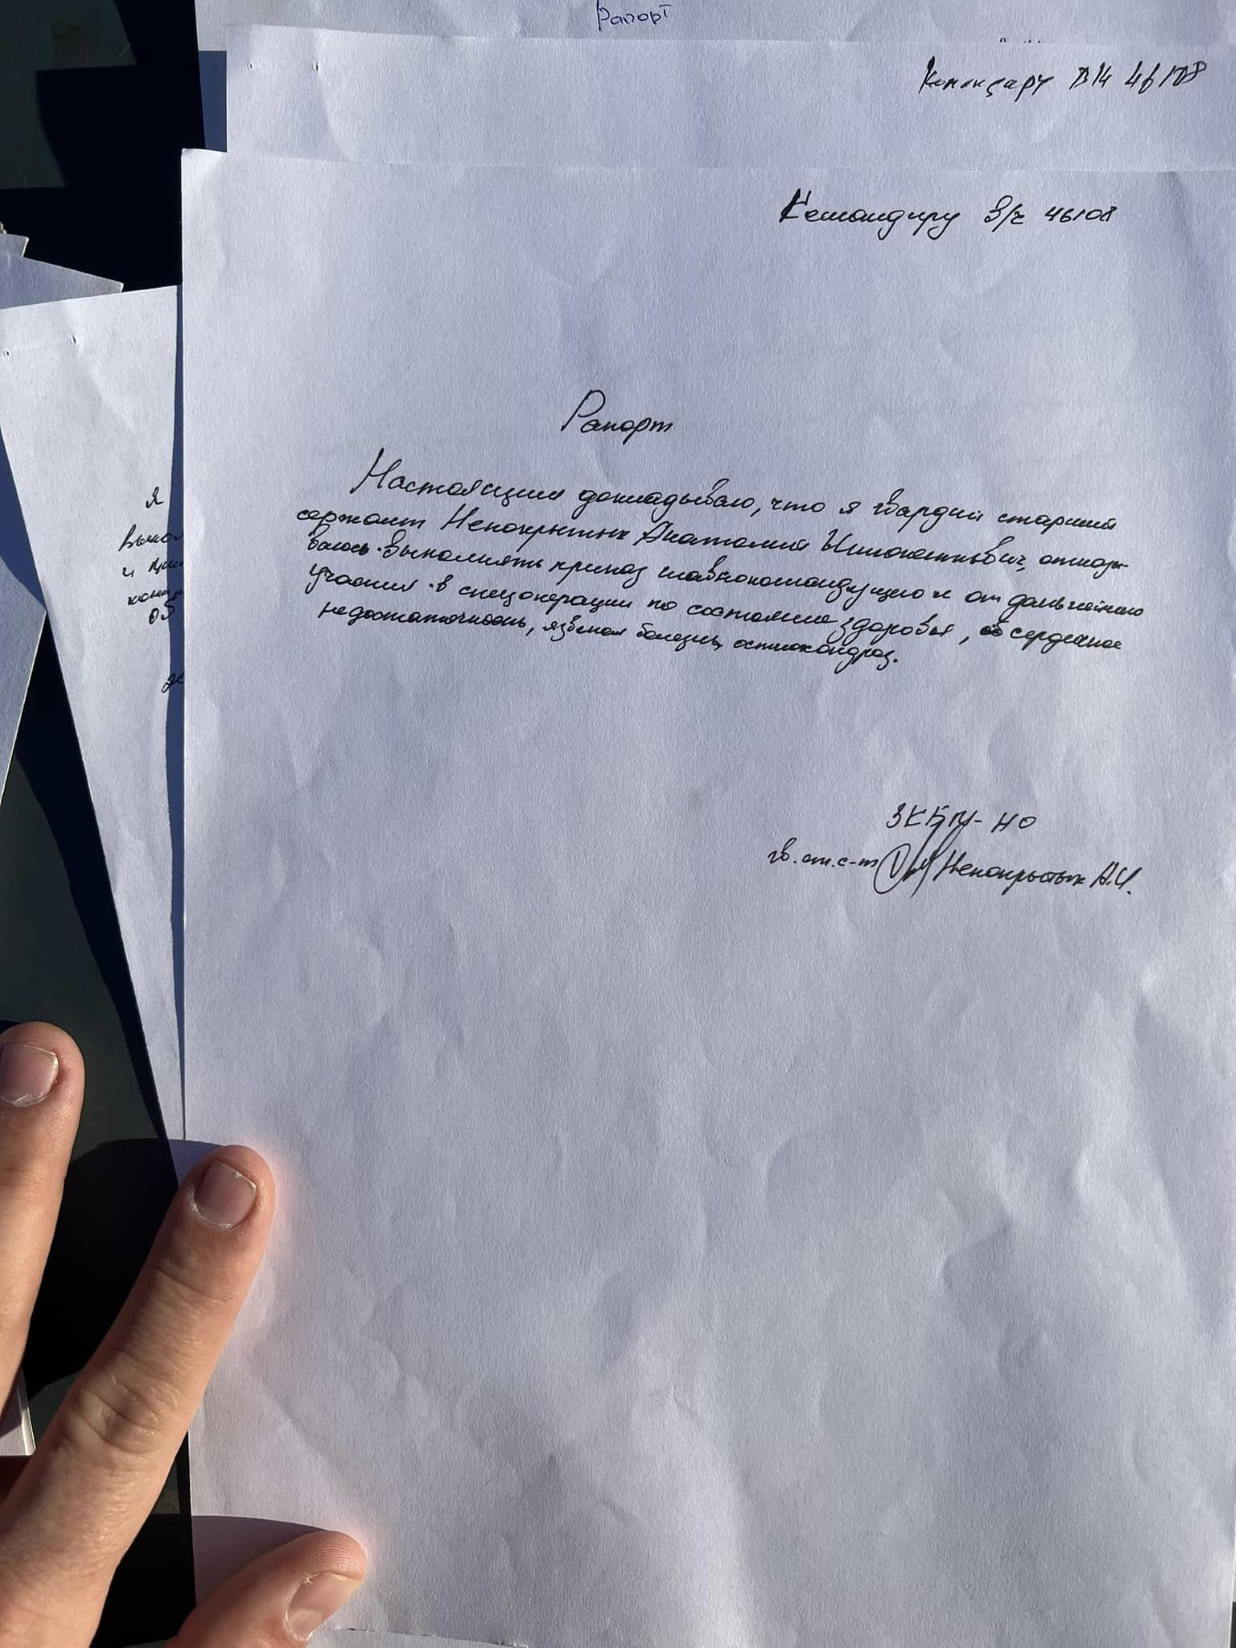 Рапорт
Командиру В/Ч 46108
Командиру в/ч 46108
Рапорт
Настоящим докладываю, что я гвардии старший
сержант Непокрытых Анатолий Иннокентьевич, отказы-
ваюсь выполнять приказ главнокомандующего и от дальнейшего
участия в спецоперации по состоянию здоровья, сердечное
недостаточность, язвеная болезнь, остиохондроз.
гв. ст. с-т Непокрытых А.И.
Я
выпо
и при
об